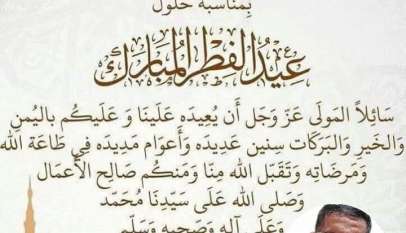 بِمناسبة حلول
عِيدُ الفِطْرِ المُبَارَك
سَائِلاً المَولَى عَزّ وَجَل أَن يُعِيدَه عَلَينَا وَ عَلَيكُم باليُمنِ
وَالخَيرِ وَالبَرَكَاتِ سِنِين عَدِيدَه وَأَعوَام مَدِيدَه فِي طَاعَة الله
وَمَرضَاتِه وَتَقَبّل الله مِنّا وَمِنكُم صَالِح الأَعمَال
وَصَلى الله عَلَى سَيّدِنَا مُحَمّد
وَعَلَى آلِه وَصَحبِه وَسَلّم